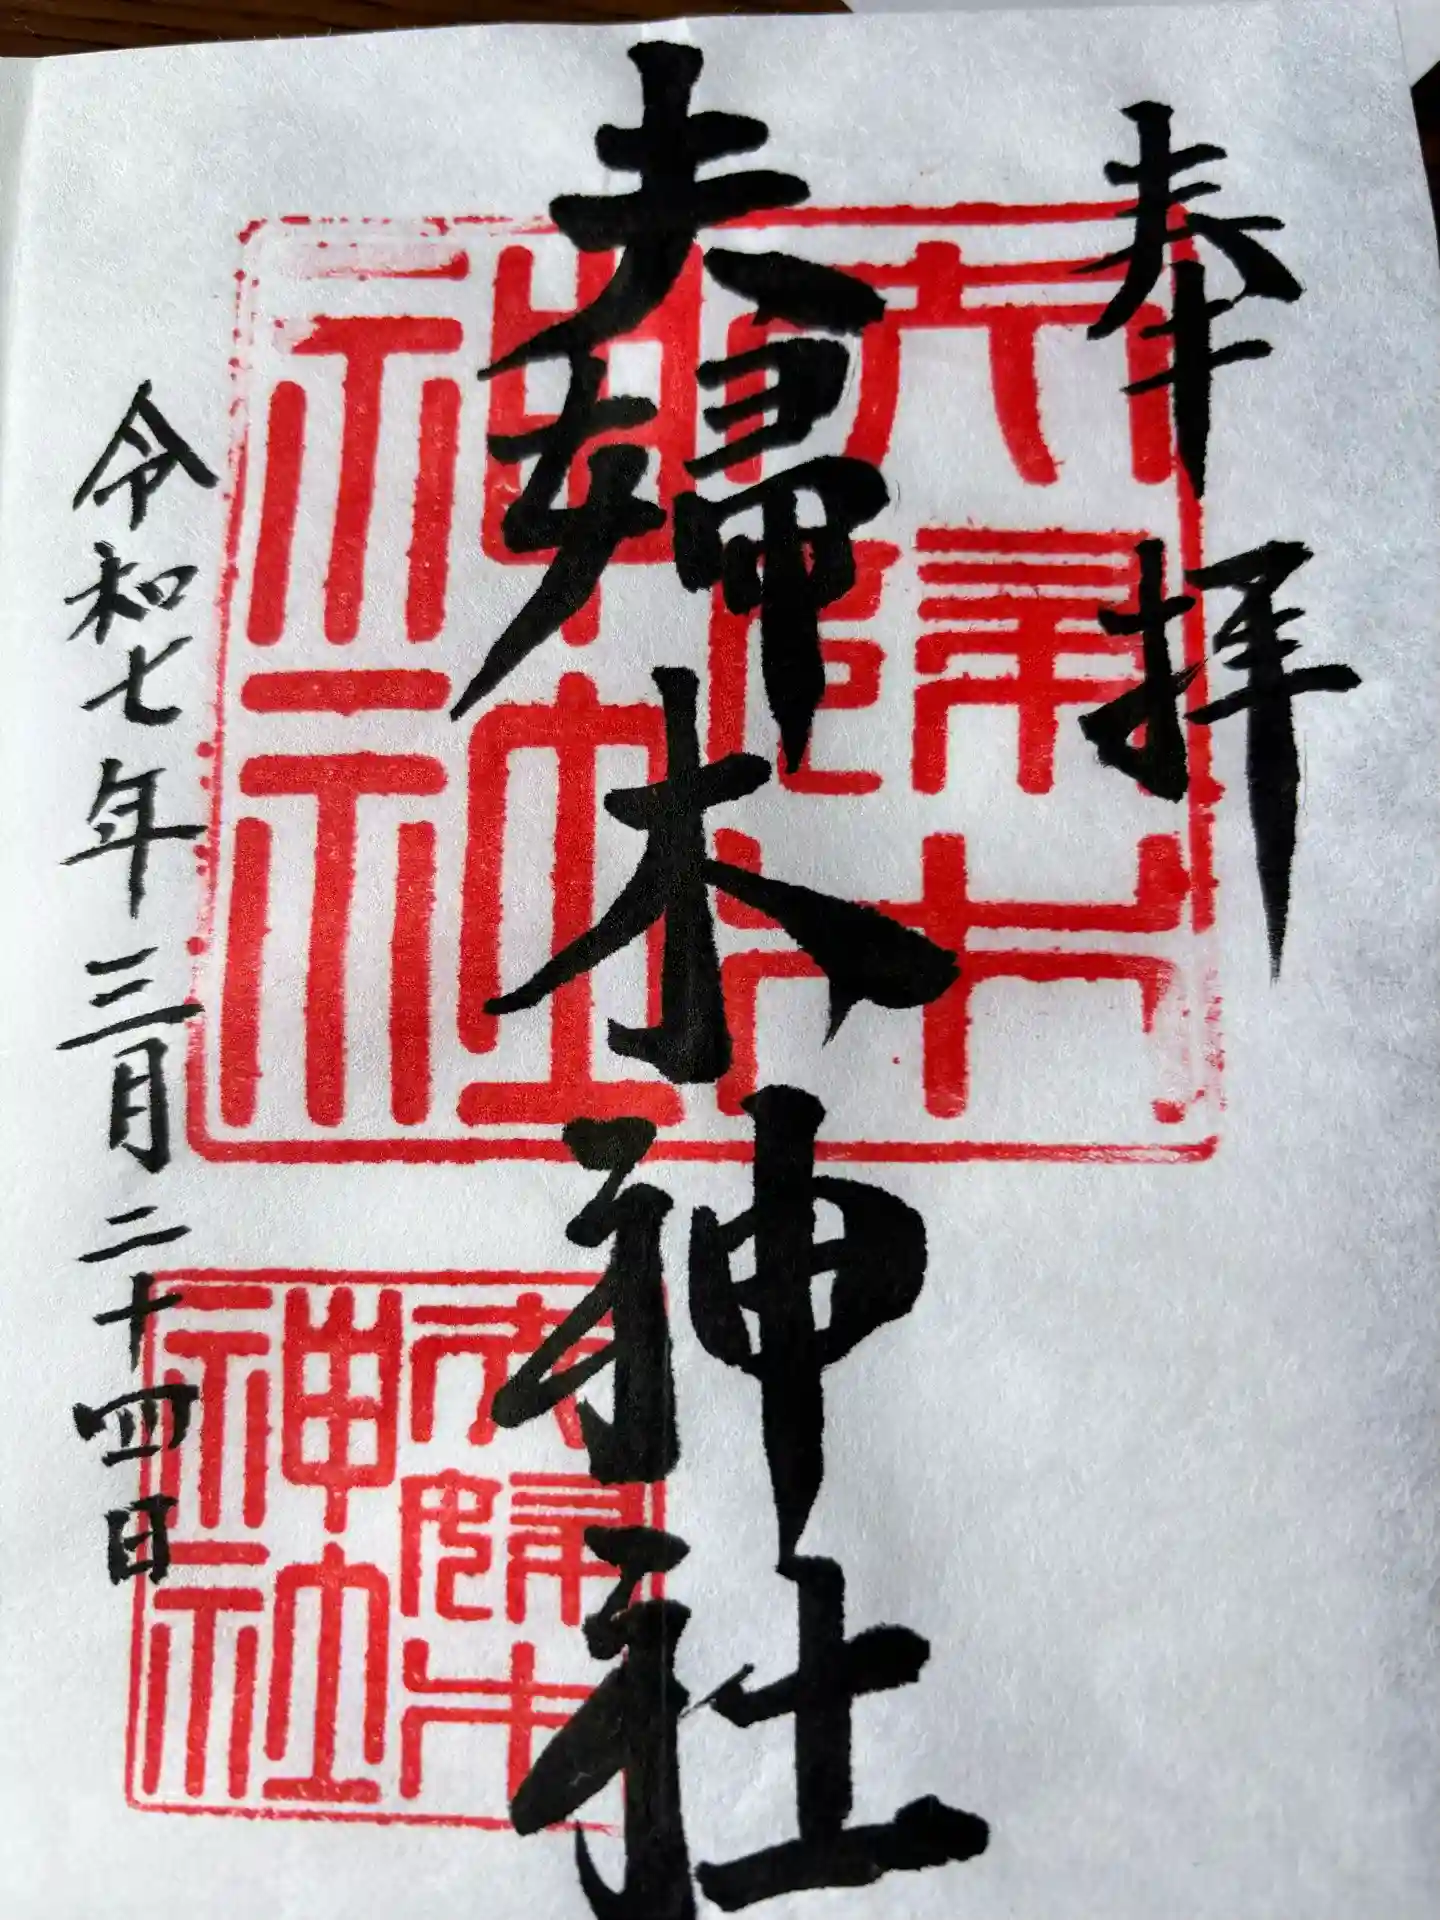 奉拝
夫婦木神社
令和七年三月二十四日
夫婦木
神社
夫婦木
神社